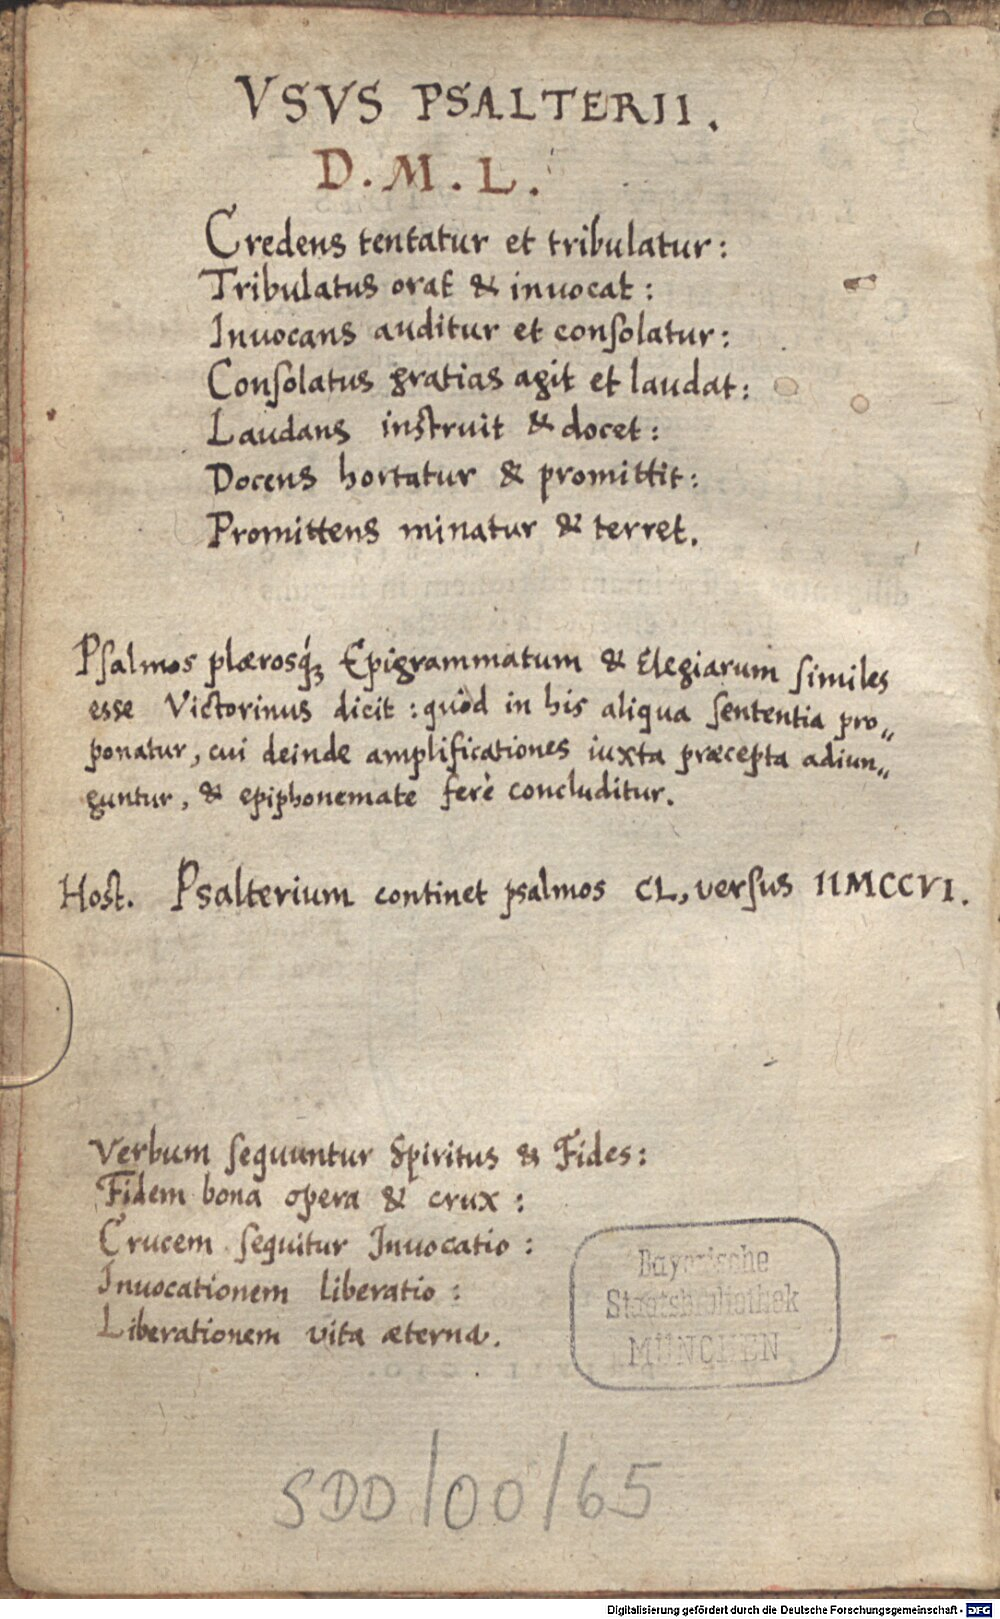 VSVS PSALTERII.
D. M. L.
Credens tentatur et tribulatur:
Tribulatus orat & inuocat:
Inuocans auditur et conſolatur:
Conſolatus gratias agit et laudat:
Laudans inſtruit & docet:
Docens hortatur & promittit:
Promittens minatur & terret.
Pſalmos plærosq́; Epigrammatum & Elegiarum ſimiles
esse Victorinus dicit: quòd in his aliqua ſententia pro„
ponatur, cui deinde amplificationes iuxta præcepta adiun„
guntur, & epiphonemate ferè concluditur.
Hoſt. Psalterium continet psalmos CL, verſus IIMCCVI.
Verbum ſequuntur Spiritus & Fides:
Fidem bona opera & crux:
Crucem ſequitur Inuocatio:
Inuocationem liberatio:
Liberationem vita æterna.
Bayerische
Staatsbibliothek
MÜNCHEN
SDD/00/65
Digitalisierung gefördert durch die Deutsche Forschungsgemeinschaft - DFG